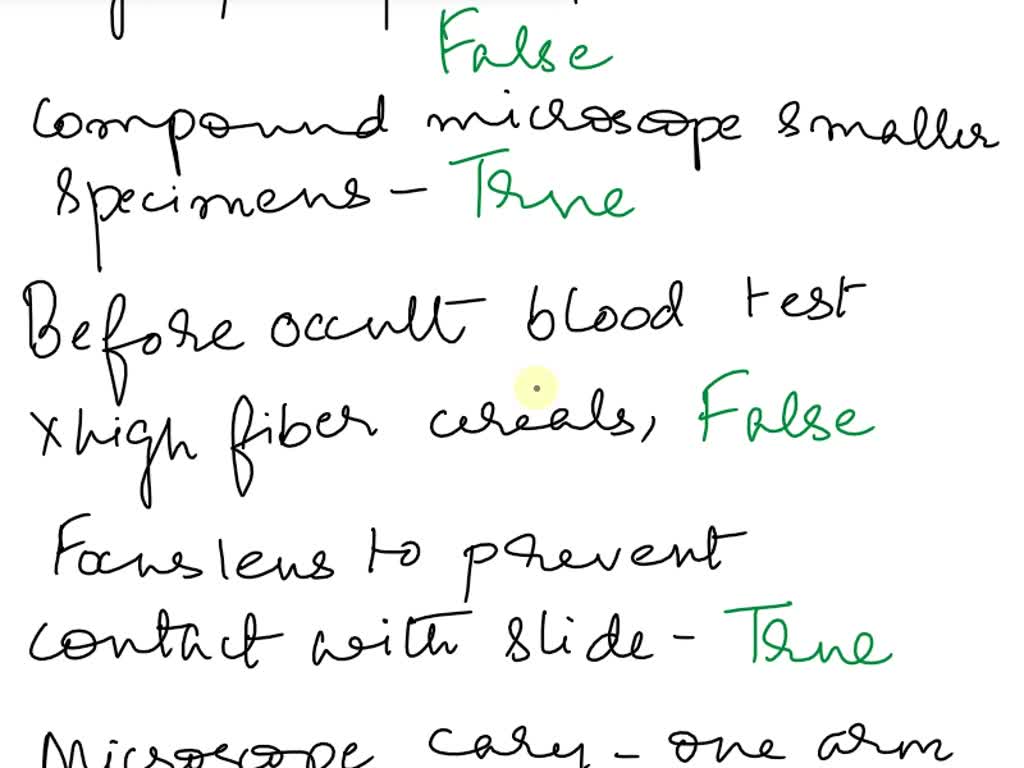 False
compound microscope smaller
specimens - True
Before occult blood test
x high fiber cereals, False
Focus lens to prevent
contact with slide - True
Microscope cary - one arm